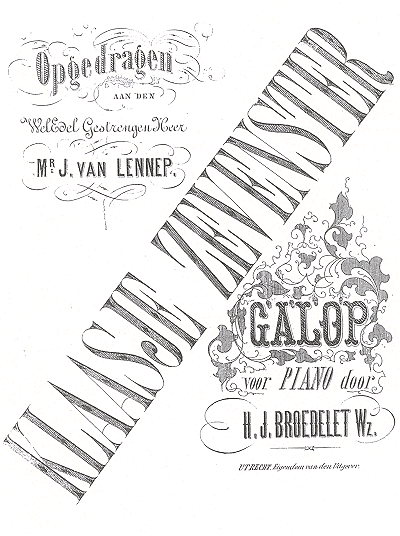 Opgedragen
AAN DEN
WelEdel Gestrengen Heer
MR. J. VAN LENNEP.
KLAASJE ZEVENSTER
GALOP
voor PIANO door
H. J. BROEDELET Wz.
UTRECHT, Eigendom van den Uitgever.